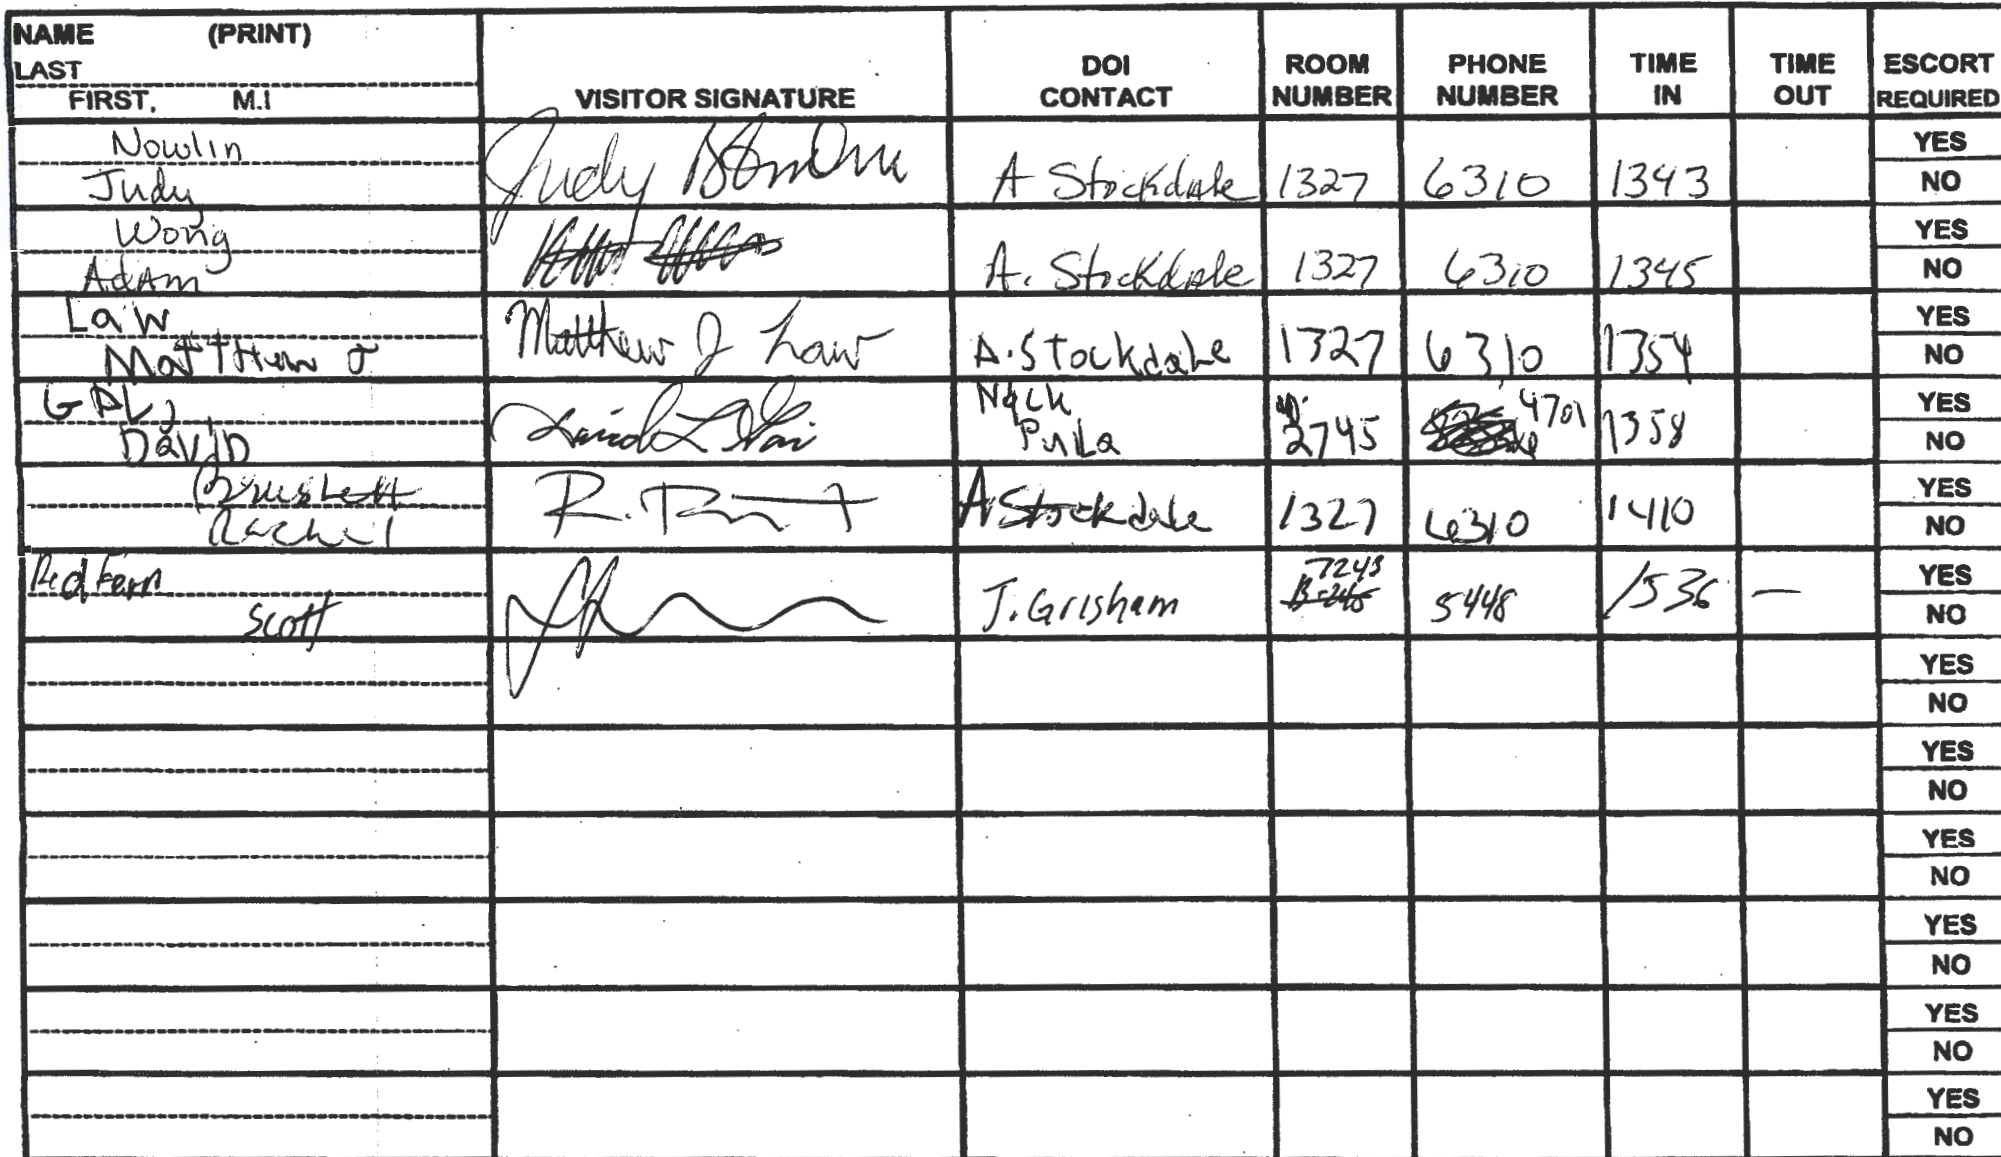 NAME (PRINT)
LAST
FIRST, M.I
VISITOR SIGNATURE
DOI
CONTACT
ROOM
NUMBER
PHONE
NUMBER
TIME
IN
TIME
OUT
ESCORT
REQUIRED
Nowlin
Judy
Judy
A Stockdale 1327 6310 1343
YES
NO
Wong
Adam
A. Stockdale 1327 6310 1345
YES
NO
Law
Matthew J
Matthew J Law
A. Stockdale 1327 6310 1354
YES
NO
David
Nick
Pula
2745
4701
1358
YES
NO
Rachel
R.
A Stockdale 1327 6310 1410
YES
NO
Redfern
Scott
J. Grisham
7243
5448 1536 —
YES
NO
YES
NO
YES
NO
YES
NO
YES
NO
YES
NO
YES
NO